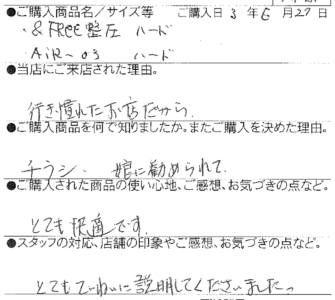 ●ご購入商品名／サイズ等　ご購入日 3 年 6 月 27 日
・&FREE 整圧 ハード
・AiR-03 ハード
●当店にご来店された理由。
行き慣れたお店だから
●ご購入商品を何で知りましたか。またご購入を決めた理由。
チラシ・娘に勧められて
●ご購入された商品の使い心地、ご感想、お気づきの点など。
とても快適です。
●スタッフの対応、店舗の印象やご感想、お気づきの点など。
とてもていねいに説明してくださいました。